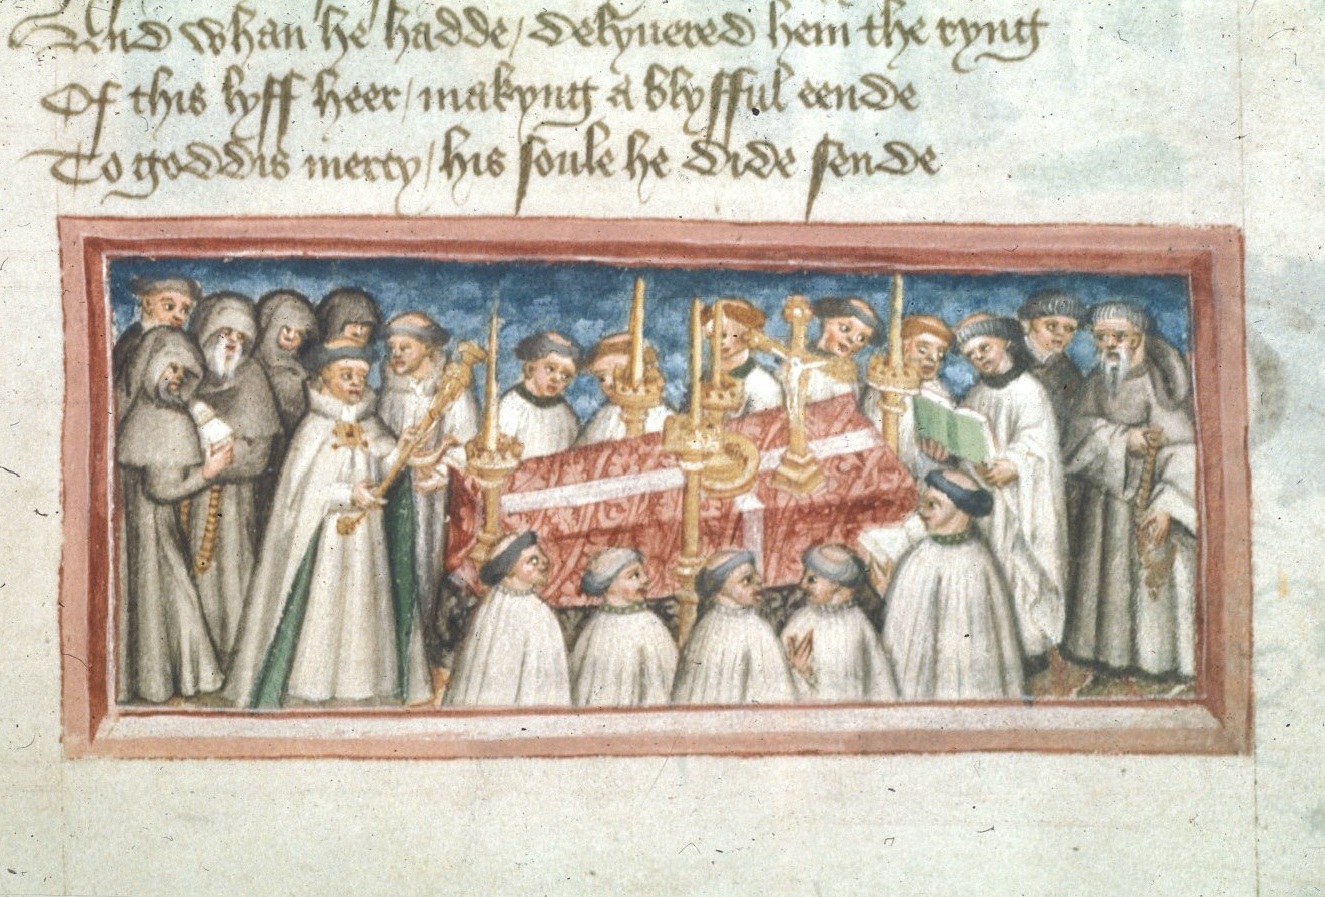 And whan he hadde / delyuered hem the ryng
Of this lyff heer / makyng a blysful eende
To goddis mercy / his soule he dide sende